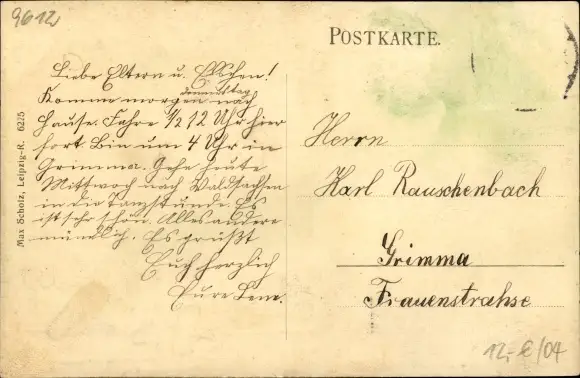 9612
POSTKARTE.
Liebe Eltern u. Elschen!
Komme morgen nach
Hause. Fahre 1/2 12 Uhr hier
fort. Bin um 4 Uhr in
Grimma. Gehe heute
Mittwoch nach Waldsachsen
in die Tanzstunde. Es
ist sehr schön. Alles andere
mündlich. Es grüßt
Euch herzlich
Eure
Max Scholz, Leipzig-R. 6225
Herrn
Karl Rauschenbach
Grimma
Frauenstrahse
12,- E/04